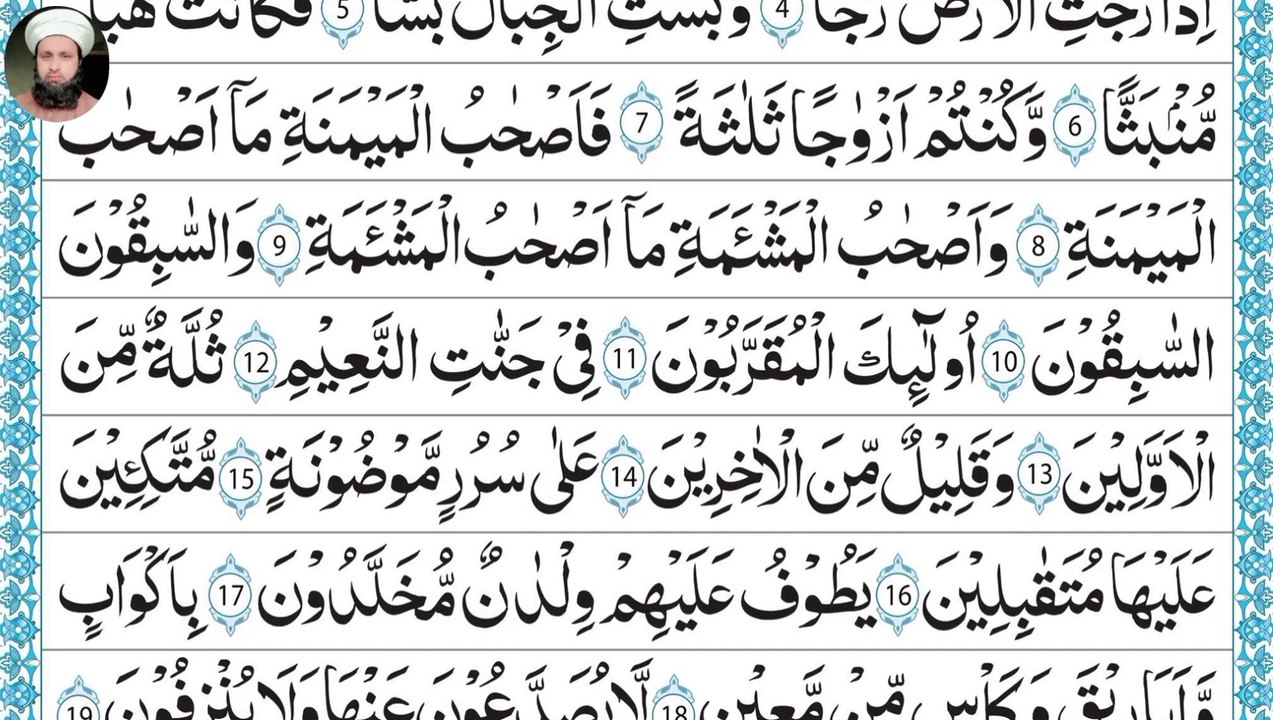 اِذَا رُجَّتِ الْاَرْضُ رَجًّا 4 وَّبُسَّتِ الْجِبَالُ بَسًّا 5 فَكَانَتْ هَبَآءً
مُّنْۢبَثًّا 6 وَّكُنْتُمْ اَزْوٰجًا ثَلٰثَةً 7 فَاَصْحٰبُ الْمَيْمَنَةِ مَآ اَصْحٰبُ
الْمَيْمَنَةِ 8 وَاَصْحٰبُ الْمَشْـَٔمَةِ مَآ اَصْحٰبُ الْمَشْـَٔمَةِ 9 وَالسّٰبِقُوْنَ
السّٰبِقُوْنَ 10 اُولٰٓئِكَ الْمُقَرَّبُوْنَ 11 فِيْ جَنّٰتِ النَّعِيْمِ 12 ثُلَّةٌ مِّنَ
الْاَوَّلِيْنَ 13 وَقَلِيْلٌ مِّنَ الْاٰخِرِيْنَ 14 عَلٰى سُرُرٍ مَّوْضُوْنَةٍ 15 مُّتَّكِـِٕيْنَ
عَلَيْهَا مُتَقٰبِلِيْنَ 16 يَطُوْفُ عَلَيْهِمْ وِلْدٰنٌ مُّخَلَّدُوْنَ 17 بِاَكْوَابٍ
وَّاَبَارِيْقَ وَكَاْسٍ مِّنْ مَّعِيْنٍ 18 لَّا يُصَدَّعُوْنَ عَنْهَا وَلَا يُنْزِفُوْنَ 19